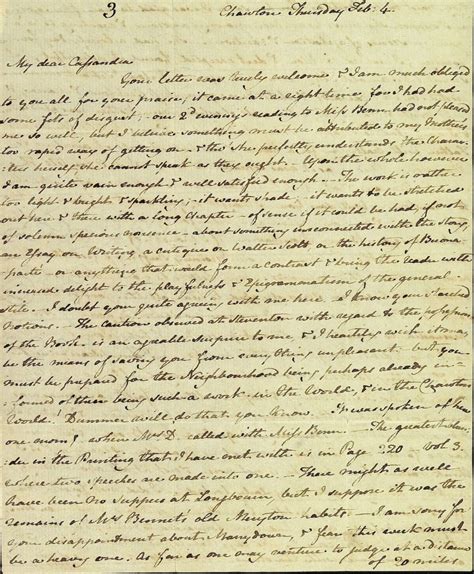 3
Chawton Thursday Feb: 4.
My dear Cassandra
Your letter was truely welcome & I am much obliged
to you all for your praise; it came at a right time, for I had had
some fits of disgust; our 2d evening's reading to Miss Benn had not pleased
me so well, but I beleive something must be attributed to my Mother's
too rapid way of getting on & tho' she perfectly understands the Charac-
ters herself, she cannot speak as they ought. Upon the whole however
I am quite vain enough & well satisfied enough. The work is rather
too light & bright & sparkling; it wants shade; it wants to be stretched
out here & there with a long Chapter of sense if it could be had, if not
of solemn specious nonsense about something unconnected with the story;
an Essay on Writing, a critique on Walter Scott, or the history of Buona-
parte or anything that would form a contrast & bring the reader with
increased delight to the playfulness & Epigrammatism of the general
stile. I doubt your quite agreeing with me here I know your starched
Notions. The caution observed at Steventon with regard to the possession
of the Book is an agreable surprise to me, & I heartily wish it may
be the means of saving you from everything unpleasant; but you
must be prepared for the Neighbourhood being perhaps already in-
formed of there being such a Work in the World, & in the Chawton
World! Dummer will do that you know. It was spoken of here
one morng when Mrs D. called with Miss Benn. The greatest blun-
der in the Printing that I have met with is in Page 220 Vol 3.
where two speeches are made into one. There might as well
have been no suppers at Longbourn, but I suppose it was the
remains of Mrs Bennet's old Meryton habits. I am sorry for
your disappointment about Manydown, & fear this week must
be a heavy one. As far as one may venture to judge at a distance
of 20 miles